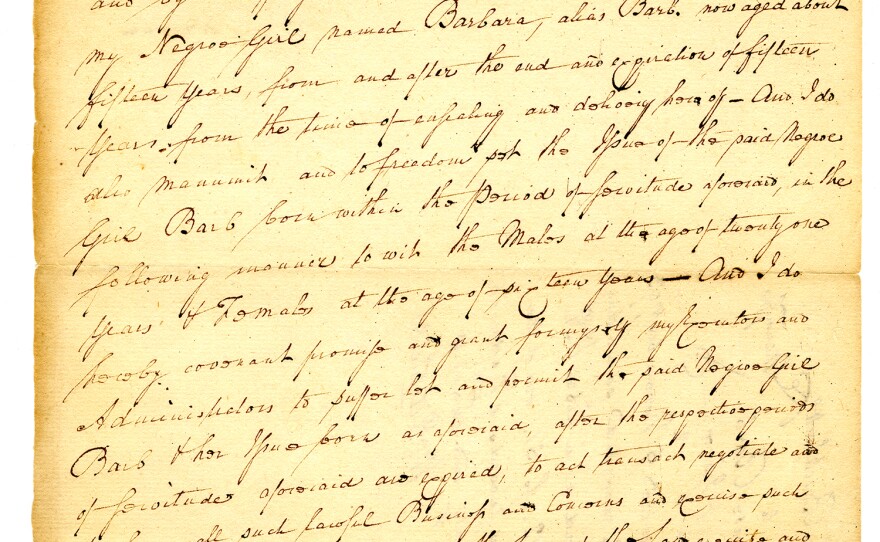 my Negroe Girl named Barbara, alias Barb. now aged about
fifteen Years, from and after the end and expiration of fifteen
Years, from the time of ensealing and delivery hereof – And I do
also manumit and to freedom set the Issue of the said Negroe
Girl Barb born within the Period of servitude aforesaid, in the
following manner to wit the Males at the age of twenty one
Years & Females at the age of sixteen Years — And I do
hereby covenant promise and grant for myself my Executors and
Administrators to suffer let and permit the said Negroe Girl
Barb & her Issue born as aforesaid, after the respective periods
of servitude aforesaid are expired, to act transact negotiate and
all such lawful Business and Concerns and exercise such